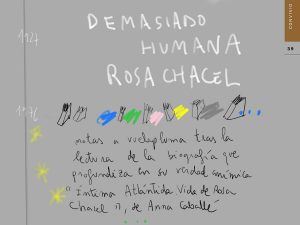 CONVIVIO
39
1927
DEMASIADO
HUMANA
ROSA CHACEL
notas a vuelapluma tras la
lectura de la biografía que
profundiza en su verdad anímica
"Íntima Atlántida Vida de Rosa
Chacel", de Anna Caballé
...